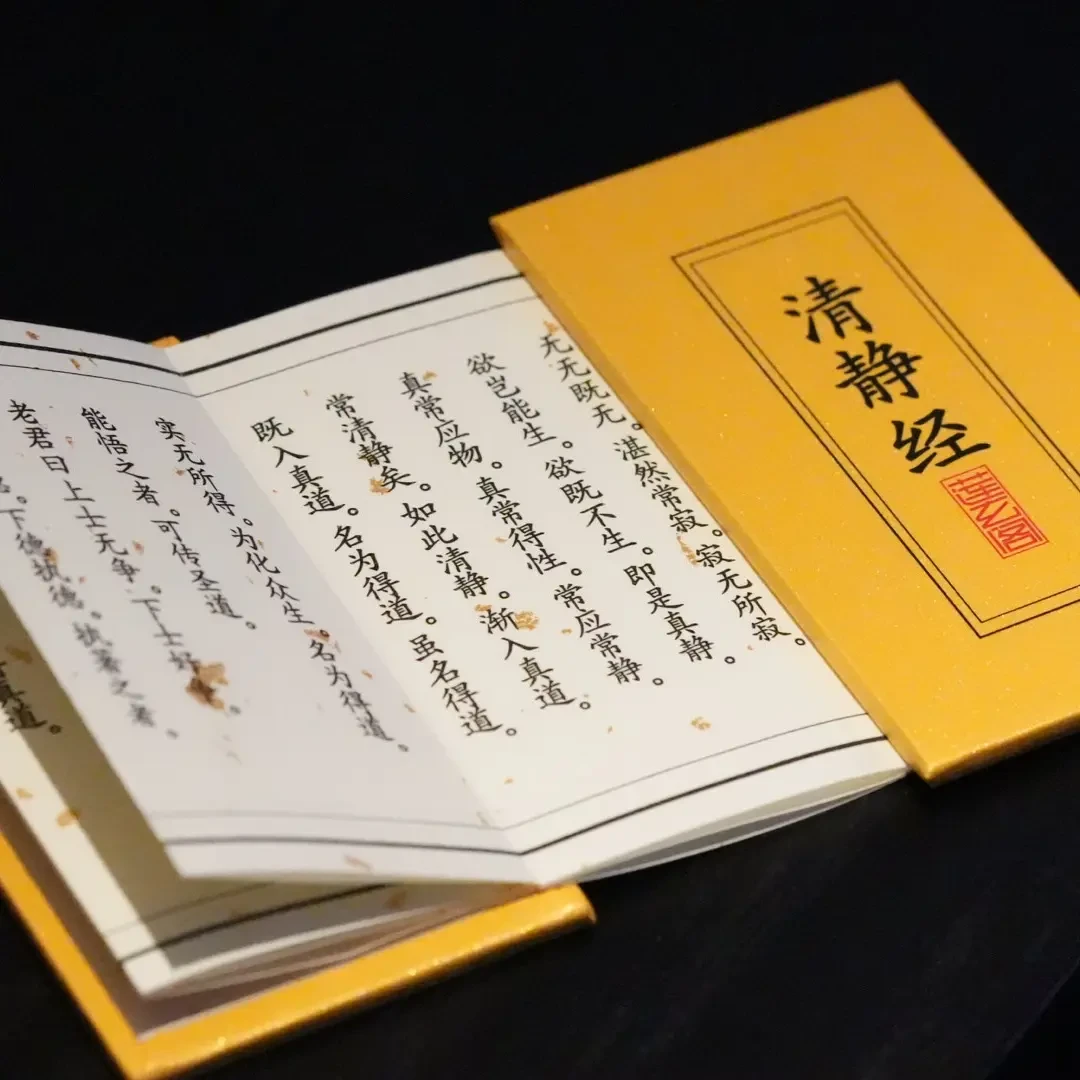 清静经
无无既无。湛然常寂。寂无所寂。
欲岂能生。欲既不生。即是真静。
真常应物。真常得性。常应常静。
常清静矣。如此清静。渐入真道。
既入真道。名为得道。虽名得道。
实无所得。为化众生。名为得道。
能悟之者。可传圣道。
老君曰上士无争。下士好。
。下德执德。执著之者。
真道。